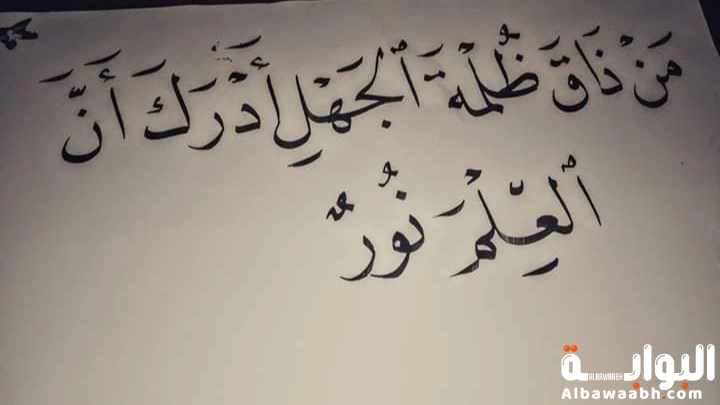 مَنْ ذَاقَ ظُلْمَةَ ٱلْجَهْلِ أَدْرَكَ أَنَّ
ٱلْعِلْمَ نُورٌ
البوابة
ALBAWAABH
Albawaabh.com